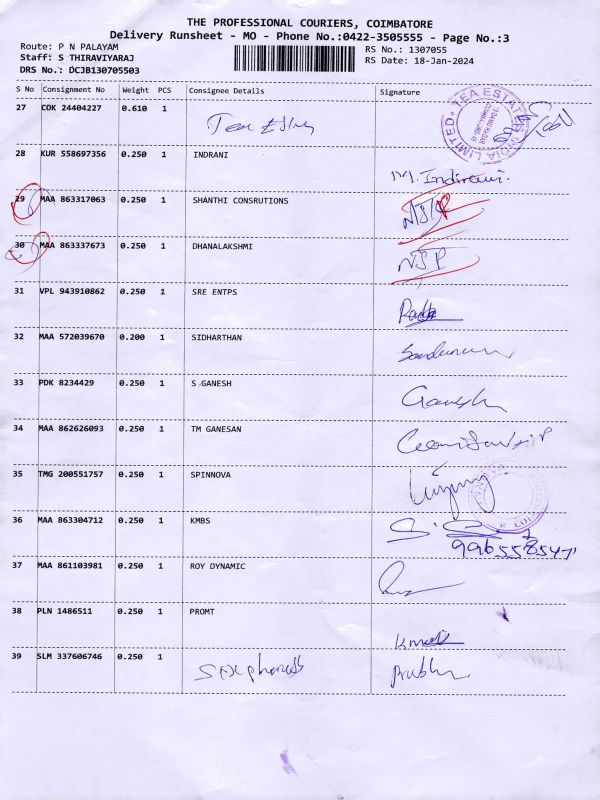 THE PROFESSIONAL COURIERS, COIMBATORE
Delivery Runsheet - MO - Phone No.:0422-3505555 - Page No.:3
Route: P N PALAYAM
RS No.: 1307055
Staff: S THIRAVIYARAJ
RS Date: 18-Jan-2024
DRS No.: DCJB130705503
S No Consignment No Weight PCS Consignee Details Signature
27 COK 24404227 0.610 1
TEA ESTATES INDIA LIMITED
28 KUR 558697356 0.250 1 INDRANI M. Indirani.
29 MAA 863317063 0.250 1 SHANTHI CONSRUTIONS NSP
30 MAA 863337673 0.250 1 DHANALAKSHMI NSP
31 VPL 943910862 0.250 1 SRE ENTPS
32 MAA 572039670 0.200 1 SIDHARTHAN
33 PDK 8234429 0.250 1 S GANESH Ganesh
34 MAA 862626093 0.250 1 TM GANESAN
35 TMG 200551757 0.250 1 SPINNOVA
36 MAA 863304712 0.250 1 KMBS
37 MAA 861103981 0.250 1 ROY DYNAMIC
38 PLN 1486511 0.250 1 PROMT
39 SLM 337606746 0.250 1 Prabhu